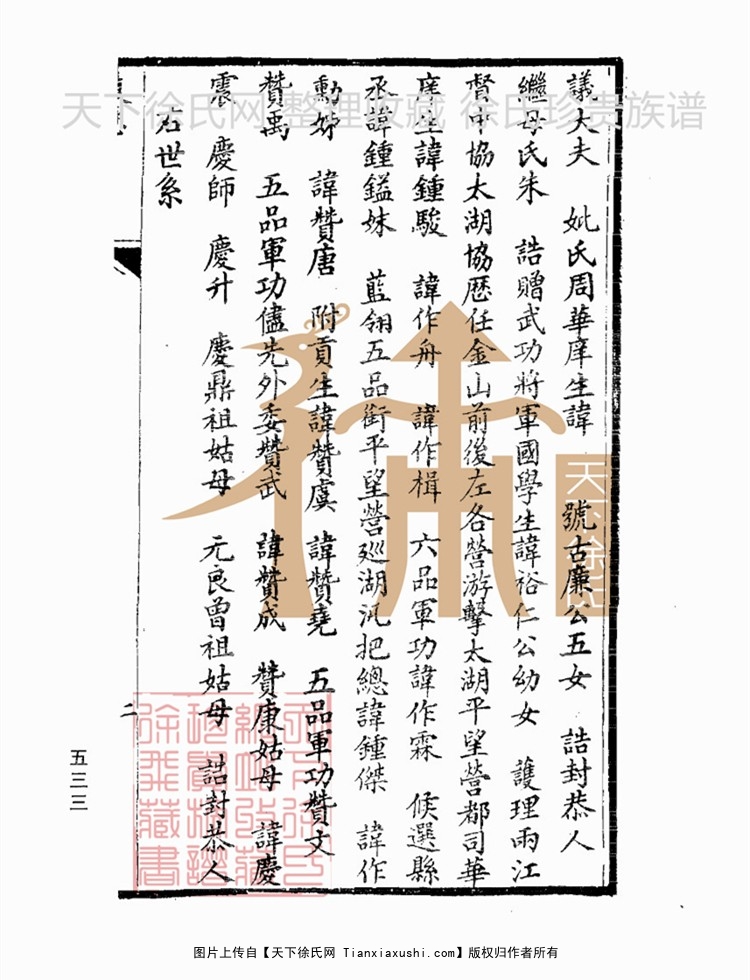 議大夫　妣氏周華庠生諱　　號古廉公五女　誥封恭人
繼母氏朱　誥贈武功將軍國學生諱裕仁公幼女　護理兩江
督中協太湖協歷任金山前後左各營游擊太湖平望營都司華
庠生諱鍾駿　諱作舟　諱作楫　六品軍功諱作霖　候選縣
丞諱鍾鎰妹　藍翎五品銜平望營巡湖汛把總諱鍾傑　諱作
勳姊　諱贊唐　附貢生諱贊虞　諱贊堯　五品軍功贊文
贊禹　五品軍功儘先外委贊武　諱贊成　贊康姑母　諱慶
震　慶師　慶升　慶鼎祖姑母　元良曾祖姑母　誥封恭人
右世系
二
五三三
天下徐氏网 整理收藏 徐氏珍贵族谱
天下徐氏
图片上传自【天下徐氏网 Tianxiaxushi.com】版权归作者所有